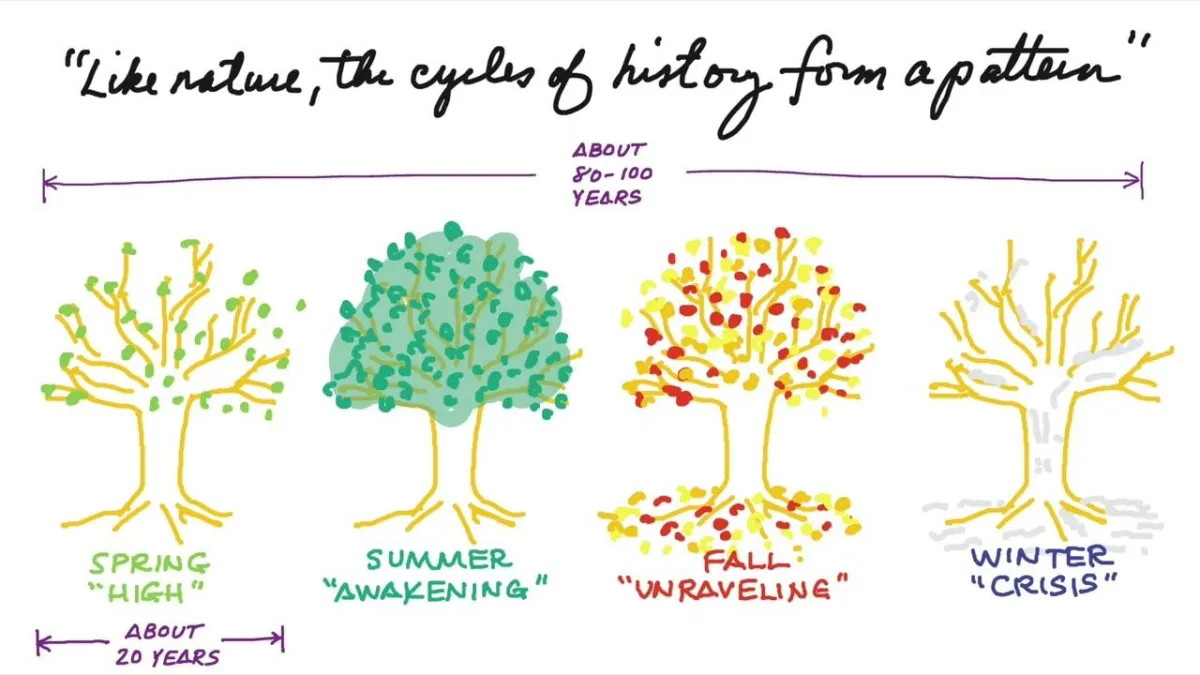 "Like nature, the cycles of history form a pattern"
ABOUT
80-100
YEARS
SPRING
"HIGH"
SUMMER
"AWAKENING"
FALL
"UNRAVELING"
WINTER
"CRISIS"
ABOUT
20 YEARS